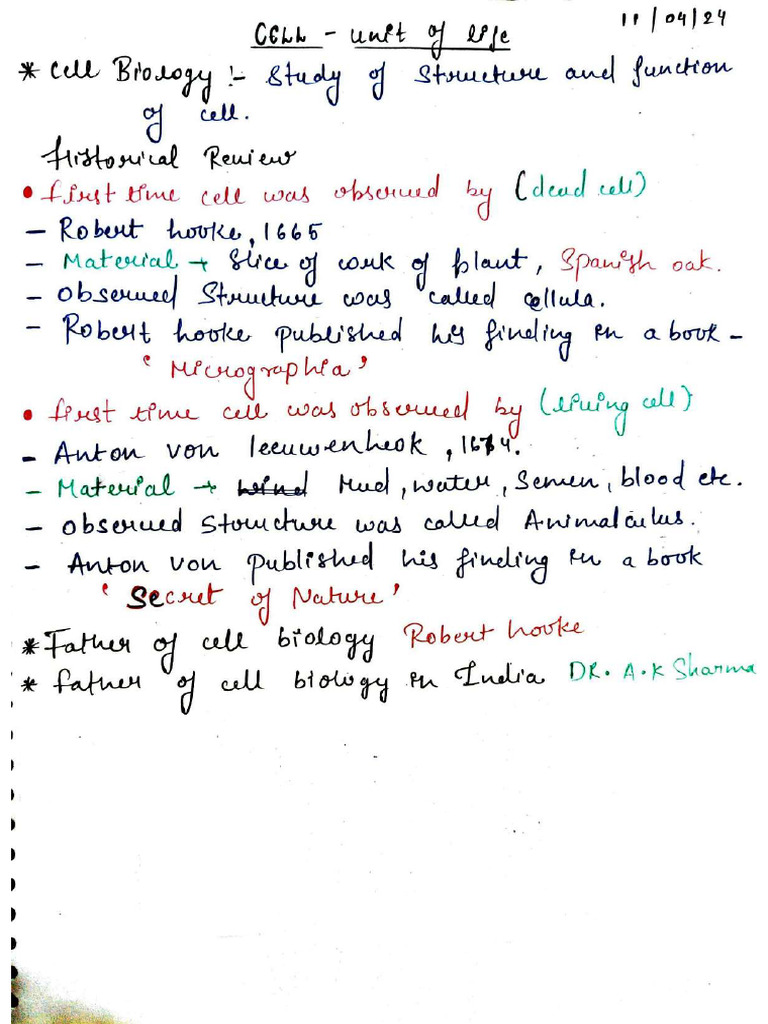 11/04/24
CELL - unit of life
* Cell Biology :- Study of Structure and function
of cell.
Historical Review
• first time cell was observed by (dead cell)
- Robert hooke, 1665
- Material → Slice of cork of plant, Spanish oak.
- Observed Structure was called cellula.
- Robert hooke published his finding in a book -
‘Micrographia’
• first time cell was observed by (living cell)
- Anton von leeuwenheok, 1674.
- Material → Mud, water, Semen, blood etc.
- observed structure was called Animalculus.
- Anton von published his finding in a book
‘Secret of Nature’
* Father of cell biology Robert hooke
* father of cell biology in India DR. A.K Sharma